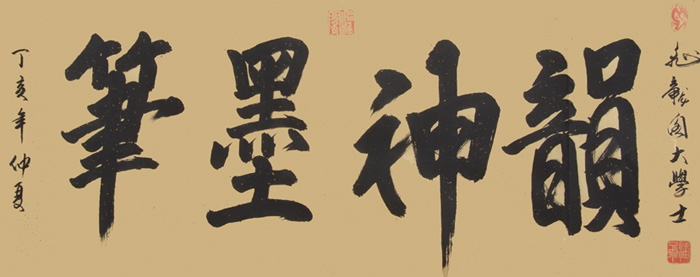 飛龍阁大學士
韻神墨筆
丁亥年仲夏